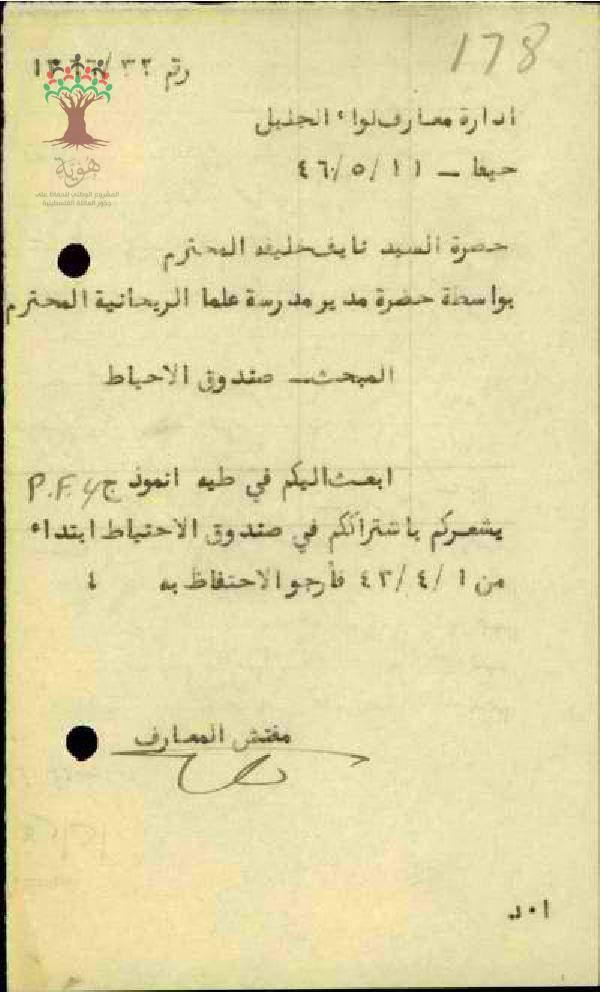 178
رقم ٣٢/
ادارة معارف لواء الجليل
حيفا – ١١/٥/٤٦
حضرة السيد نايف خليفه المحترم
بواسطة حضرة مدير مدرسة علما الريحانية المحترم
المبحث – صندوق الاحياط
ابعث اليكم في طيه انموذج P.F.4
يشعركم باشتراككم في صندوق الاحتياط ابتداء
من ١/٤/٤٣ فأرجو الاحتفاظ به ،
مفتش المعارف
ا٠د.
هوية
المشروع الوطني للحفاظ على
جذور العائلة الفلسطينية